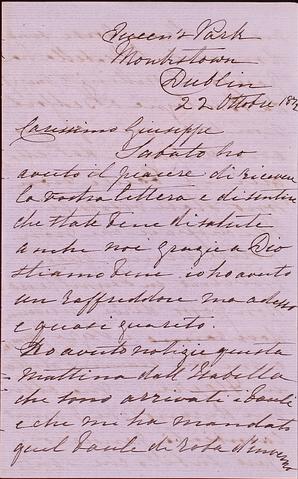 Queen's Park
Monkstown
Dublin
22 Ottobre 187
Carissimo Giuseppe
Sabato ho
avuto il piacere di ricevere
la vostra lettera e di sentire
che state bene di salute
anche noi grazie a Dio
stiamo bene io ho avuto
un raffreddore ma adesso
e quasi guarito.
Ho avuto notizie questa
mattina dall'Isabella
che sono arrivati i baule
e che mi ha mandato
quel baule di roba d'inverno